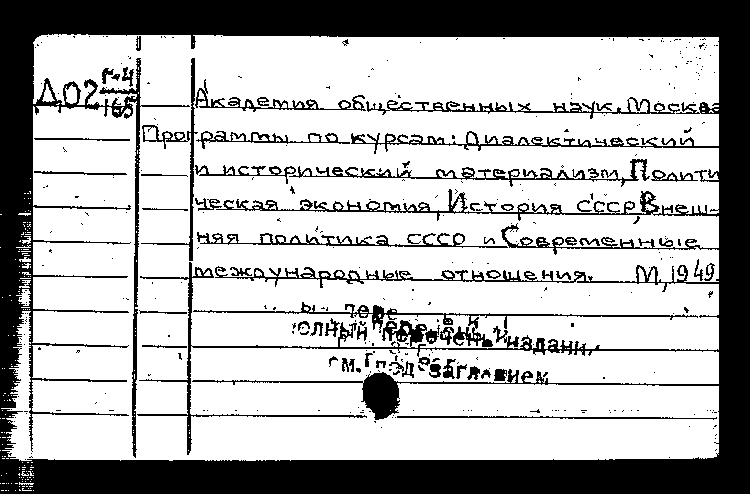 Д02 Г-4/165
Академия общественных наук. Москва
Программы по курсам: Диалектический
и исторический материализм, Полити
ческая экономия, История СССР, Внеш-
няя политика СССО и Современные
международные отношения. М., 1949.
перечень издани
под заглавием